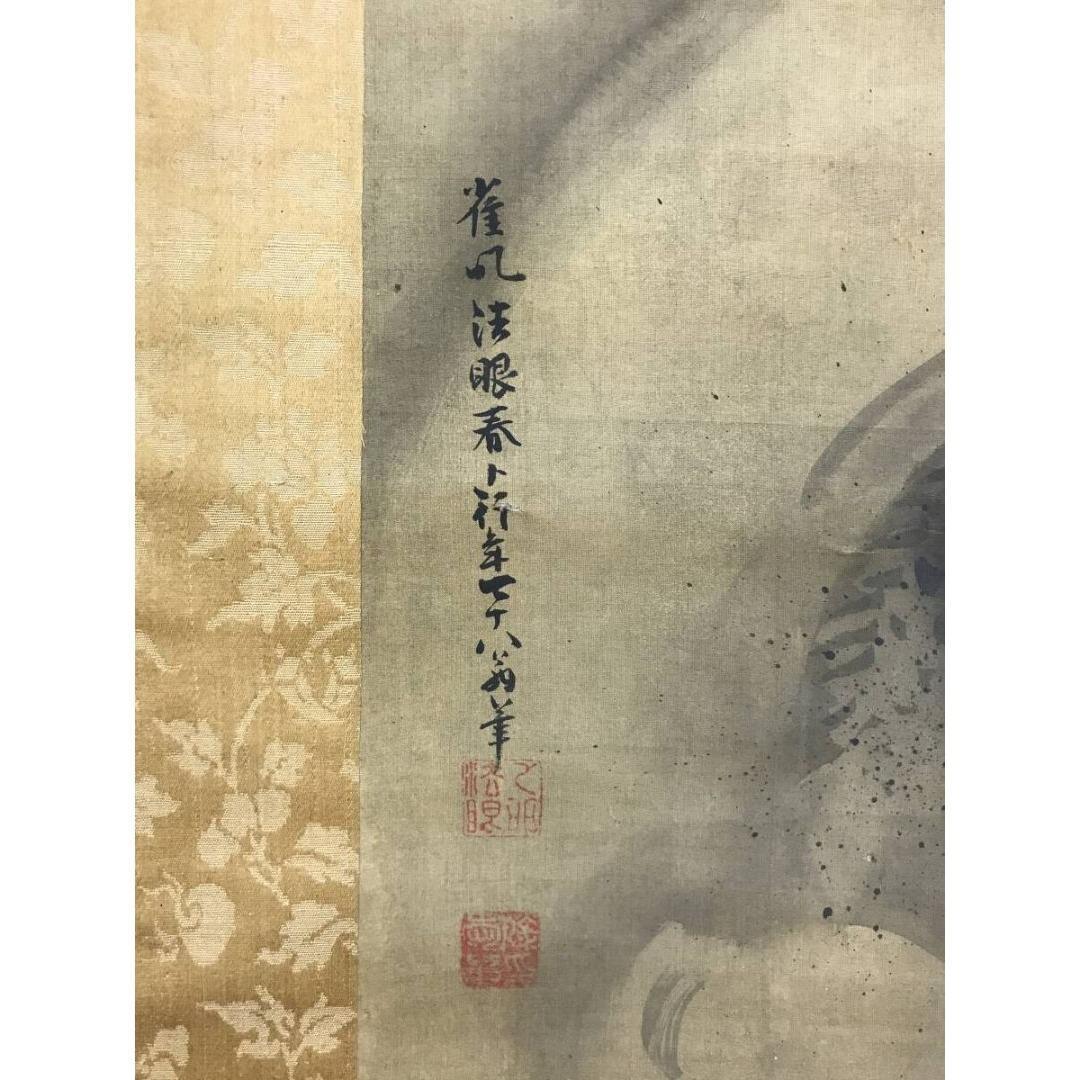 雀叱法眼春卜行年七十八翁筆
法眼